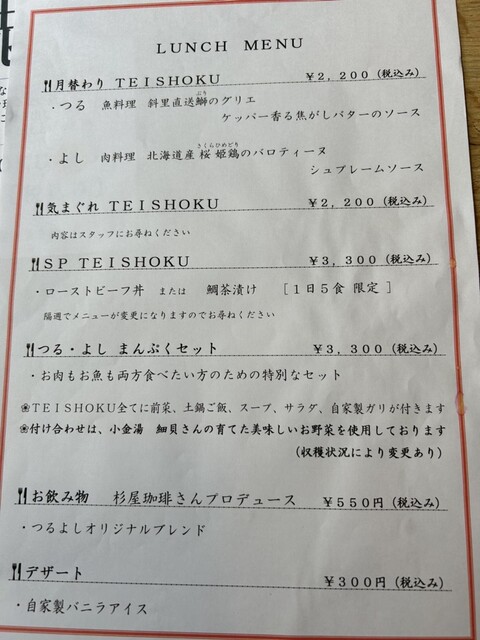 LUNCH MENU
月替わり TEISHOKU ￥2,200(税込み)
・つる 魚料理 斜里直送鰤のグリエ
ぶり
ケッパー香る焦がしバターのソース
・よし 肉料理 北海道産 桜姫鶏のバロティーヌ
さくらひめどり
シュプレームソース
気まぐれ TEISHOKU ￥2,200(税込み)
内容はスタッフにお尋ねください
SP TEISHOKU ￥3,300(税込み)
・ローストビーフ丼 または 鯛茶漬け [1日5食 限定]
隔週でメニューが変更になりますのでお尋ねください
つる・よし まんぷくセット ￥3,300(税込み)
・お肉もお魚も両方食べたい方のための特別なセット
❀TEISHOKU全てに前菜、土鍋ご飯、スープ、サラダ、自家製ガリが付きます
❀付け合わせは、小金湯 細貝さんの育てた美味しいお野菜を使用しております
(収穫状況により変更あり)
お飲み物 杉屋珈琲さんプロデュース ￥550円(税込み)
・つるよしオリジナルブレンド
デザート ￥300円(税込み)
・自家製バニラアイス